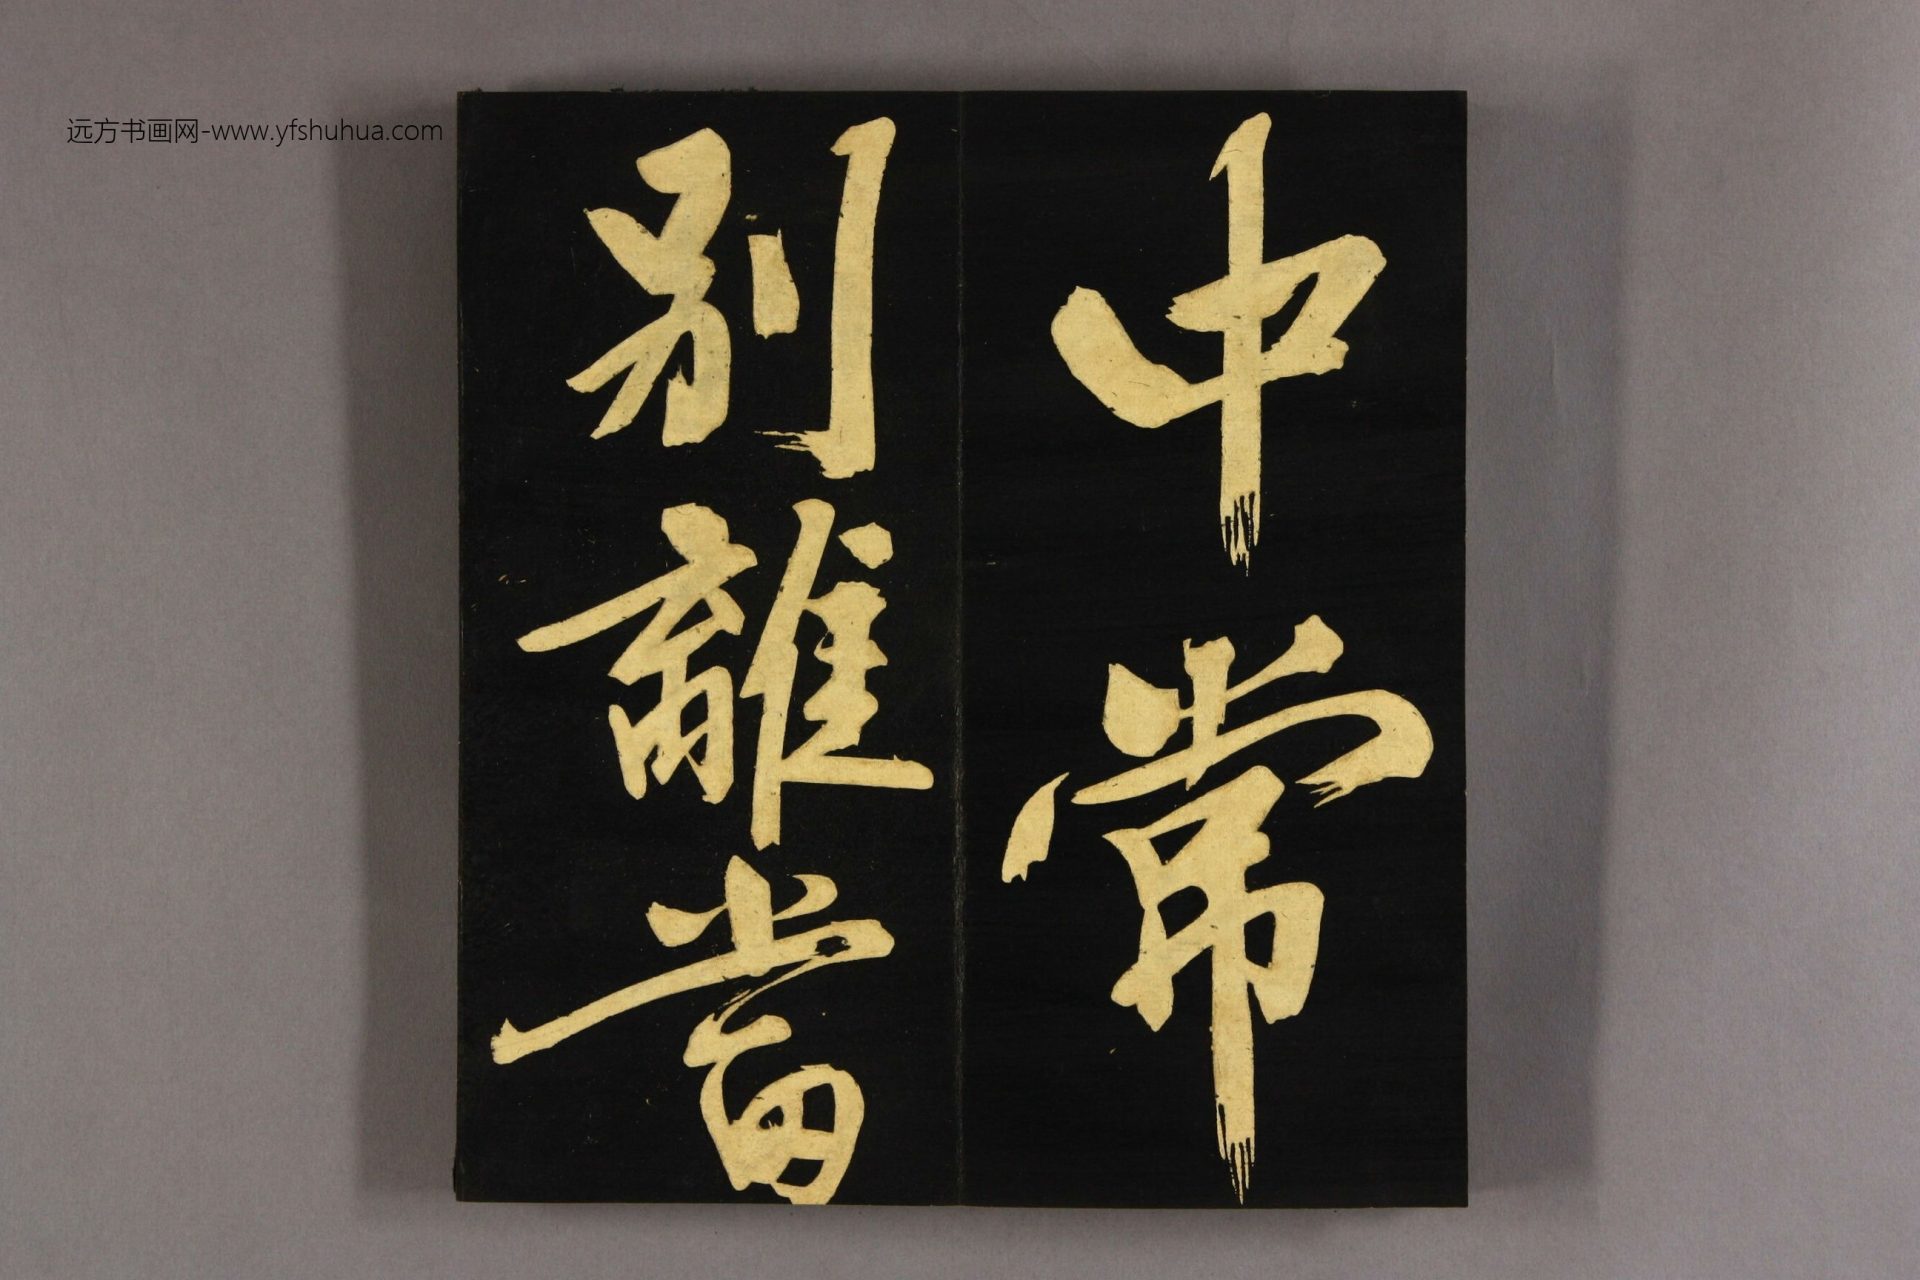 远方书画网-www.yfshuhua.com
中常
别離當